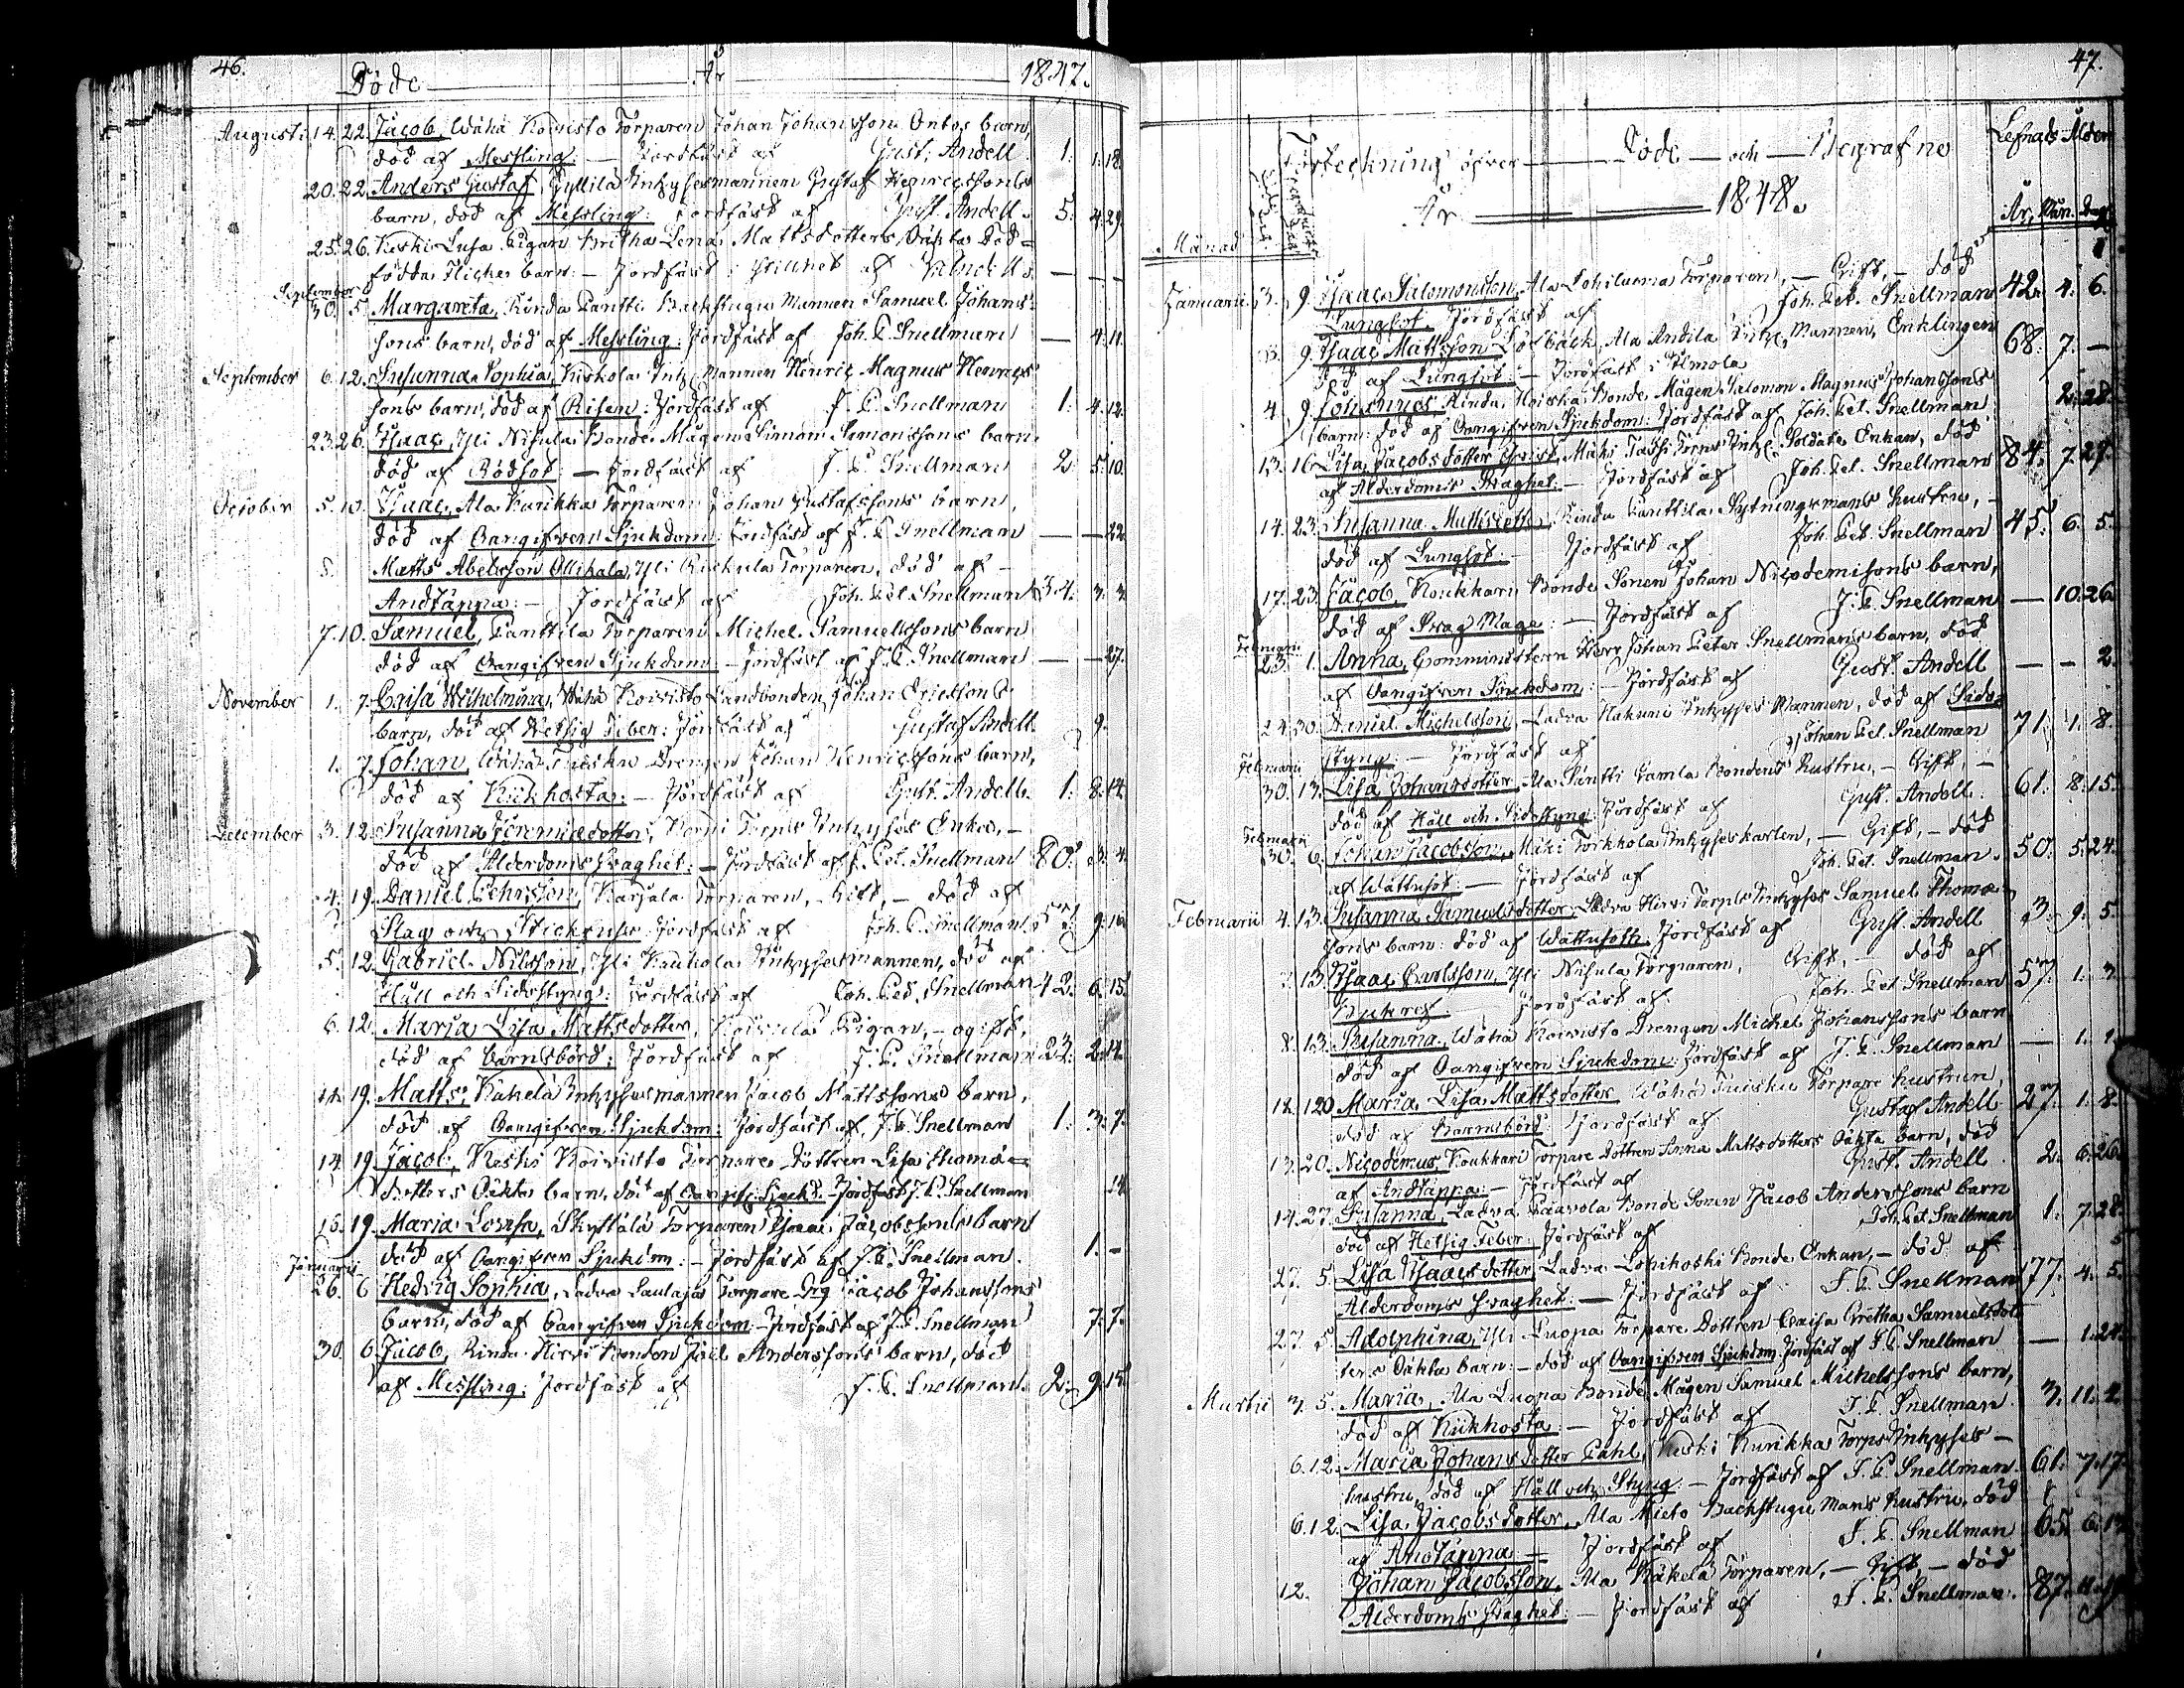 46.
Döde År 1847.
Augusti 14. 22. Jacob, Wähä Koivisto Torparen Johan Johansson Ontos barn,
död af Messling: — Jordfäst af Gust. Andell 1. 1. 18.
20. 22. Anders Gustaf, Gyllilä Inhysesmannen Gustaf Henricssons
barn, död af Messling: Jordfäst af Gust. Andell. 5. 4. 29.
25. 26. Keski Luja Pigan Britha Lena Mattsdotters Oäkta Död=
födda Flicke barn: — Jordfäst i stillhet af Andell. — — —
September
30. 5. Margareta, Rinda Pantti Backstugu Mannen Samuel Johans=
sons barn, död af Messling: Jordfäst af Joh. P. Snellman — 4. 11.
September 6. 12. Susanna Sophia, Kiskola Inh. Mannen Henric Magnus Henrics
sons barn, död af Risen: Jordfäst af J. P. Snellman 1. 4. 12.
23. 26. Isaac, Yli Nisula Bonde Mågen Simon Simonssons barn.
död af Rödsot: — Jordfäst af J. P. Snellman 2. 5. 10.
October 5. 10. Isaac, Ala Kurikka Torparen Johan Gustafssons barn,
död af Oangifven Sjukdom: Jordfäst af J. P. Snellman — — 22
5. Matts Abelsson Ollikala, Yli Torparen, död af —
Andtäppa: — Jordfäst af Joh. Pet. Snellman 34. 3. 3.
7. 10. Samuel, Panttila Torparen Michel Samuelssons barn
död af Oangifven Sjukdom — Jordfäst af J. P. Snellman — — 27.
November 1. 7. Caisa Wilhelmina, Wähä Koivisto Landbonden Johan Ericsson
barn, död af Hetsig Feber: Jordfäst af Gustaf Andell. 9.
1. 7. Johan, Wähä Drengen Johan Henricssons barn,
död af Kikhosta: — Jordfäst af Gust. Andell. 1. 8. 14.
December 3. 12. Susanna Jeremiædotter, Torps Inhyses Enka, —
död af Ålderdoms Svaghet: — Jordfäst af J. Pet. Snellman 80. 3. 4.
4. 19. Daniel Pehrsson, Karjala Torparen, Gift, — död af
Slag och Jordfäst af Joh. P. Snellman 9. 16
5. 12. Gabriel Nilsson, Yli Kaukola Inhysesmannen, död af
Håll och Sidostyng: Jordfäst af Joh. Pet. Snellman 42. 6. 15.
6. 12. Maria Lisa Mattsdotter, Koivula Pigan, — ogift,
död af Barnsbörd: Jordfäst af J. P. Snellman 23. 2. 14.
11. 19. Matts, Käkelä Inhysesmannen Jacob Mattssons barn,
död af Oangifven Sjukdom: Jordfäst af J. P. Snellman 1. 3. 7.
14. 19. Jacob, Keski Koivisto Torpare Dottren Lisa Thomæ=
dotters Oäkta barn, död af Oangifv. Sjukd. Jordfäst J. P. Snellman 14
15. 19. Maria Lovisa, Torparen Isaac Jacobssons barn
död af Oangifven Sjukdom: — Jordfäst af J. P. Snellman. 1. —
Januarii
26. 6. Hedvig Sophia, Ladva Laulaja Torpare Drg Jacob Johanssons
barn, död af Oangifven Sjukdom: Jordfäst af J. P. Snellman 7. 7.
30. 6. Jacob, Rinda Hirvi Bonden Joel Anderssons barn, död
af Messling: Jordfäst af J. P. Snellman. 2. 9. 15.
47.
Förteckning öfver Döde och Begrafne
År 1848.
Lefnads Ålder
Månad År, Mån. Dag.
Januarii 3. 9. Isaac Salomonsson, Ala Lohiluoma Torparen, — Gift, — död
Lungsot, Jordfäst af Joh. Pet. Snellman 42. 4. 6.
3. 9. Isaac Mattsson Lödbäck, Ala Andila Inh. Mannen, Enklingen
död af Lungsot: — Jordfäst i Ilmola 68. 7. —
4. 9. Johannes, Rinda Bonde Mågen Salomon Magnus Johanssons
barn: död af Oangifven Sjukdom: Jordfäst af Joh. Pet. Snellman 2. 28.
13. 16. Lisa Jacobsdotter Qvist, Mäki Torps Inh. Soldate Enkan, död
af Ålderdoms Svaghet: — Jordfäst af Joh. Pet. Snellman 84. 7. 29.
14. 23. Susanna Mattsdotter, Rinda Panttila Sytningsmans hustru, —
död af Lungsot: — Jordfäst af Joh. Pet. Snellman 45. 6. 5.
17. 23. Jacob, Koukkari Bonde Sonen Johan Nicodemisons barn,
död af Svag Mage: — Jordfäst af J. P. Snellman — 10. 26.
Februari
23. 1. Anna, Comministern Herr Johan Peter Snellmans barn, död
af Oangifven Sjukdom: — Jordfäst af Gust. Andell — — 2.
24. 30. Daniel Michelsson, Ladva Hakuni Inhyses Mannen, död af Sido=
styng — Jordfäst af Johan Pet. Snellman 71. 1. 8.
Februarii
30. 13. Lisa Johansdotter, Ala Pantti Gamla Bondens hustru, — Gift, —
död af Håll och Sidostyng: Jordfäst af Gust. Andell. 61. 8. 15.
Februarii
30. 6. Johan Jacobsson, Mäki Torkkola Inhyseskarlen, — Gift, — död
af Wattusot: — Jordfäst af Joh. Pet. Snellman. 50. 5. 24.
Februarii 4. 13. Susanna Samuelsdotter, Ladva Hirvi Torps Inhyses Samuel Thomæ
sons barn: död af Wattusoth. Jordfäst af Gust. Andell 3. 9. 5.
7. 13. Isaac Carlsson, Yli Nisula Torparen, Gift, — död af
Jordfäst af Joh. Pet. Snellman 57. 1. 3.
8. 13. Susanna, Wähä Koivisto Drengen Michel Johanssons barn
död af Oangifven Sjukdom: Jordfäst af J. P. Snellman — 1. 1.
18. 20. Maria Lisa Mattsdotter, Wähä Torpare hustrun,
död af Barnsbörd: Jordfäst af Gustaf Andell 27. 1. 8.
13. 20. Nicodemus, Koukkari Torpare Dottren Anna Mattsdotters Oäkta barn, död
af Andtäppa: — Jordfäst af Gust. Andell. 2. 6. 26.
14. 27. Susanna, Ladva Paavola Bonde Sonen Jacob Anderssons barn
död af Hetsig Feber: Jordfäst af Joh. Pet. Snellman 1. 7. 28.
27. 5. Lisa Isaacsdotter, Ladva Lohikoski Bonde Enkan, — död af
Ålderdoms svaghet: — Jordfäst af J. P. Snellman 77. 4. 5.
27. 5. Adolphina, Yli Luopa Torpare Dottren Caisa Gretha Samuelsdot
ters Oäkta barn: — död af Oangifven Sjukdom Jordfäst af J. P. Snellman — 1. 24.
Martii 3. 5. Maria, Ala Luopa Bonde Mågen Samuel Michelssons barn,
död af Kikhosta: — Jordfäst af J. P. Snellman 3. 11. 2.
6. 12. Maria Johansdotter Pahl, Keski Kurikka Torps Inhyses —
hustru, död af Håll och Styng: — Jordfäst af J. P. Snellman 61. 7. 17.
6. 12. Lisa Jacobsdotter, Ala Mieto Backstugu Mans hustru, död
af Andtäppa: — Jordfäst af J. P. Snellman 65. 6. 13
12. Johan Jacobsson, Ala Käkelä Torparen, — Gift, — död
Ålderdoms svaghet: — Jordfäst af J. P. Snellman. 87.